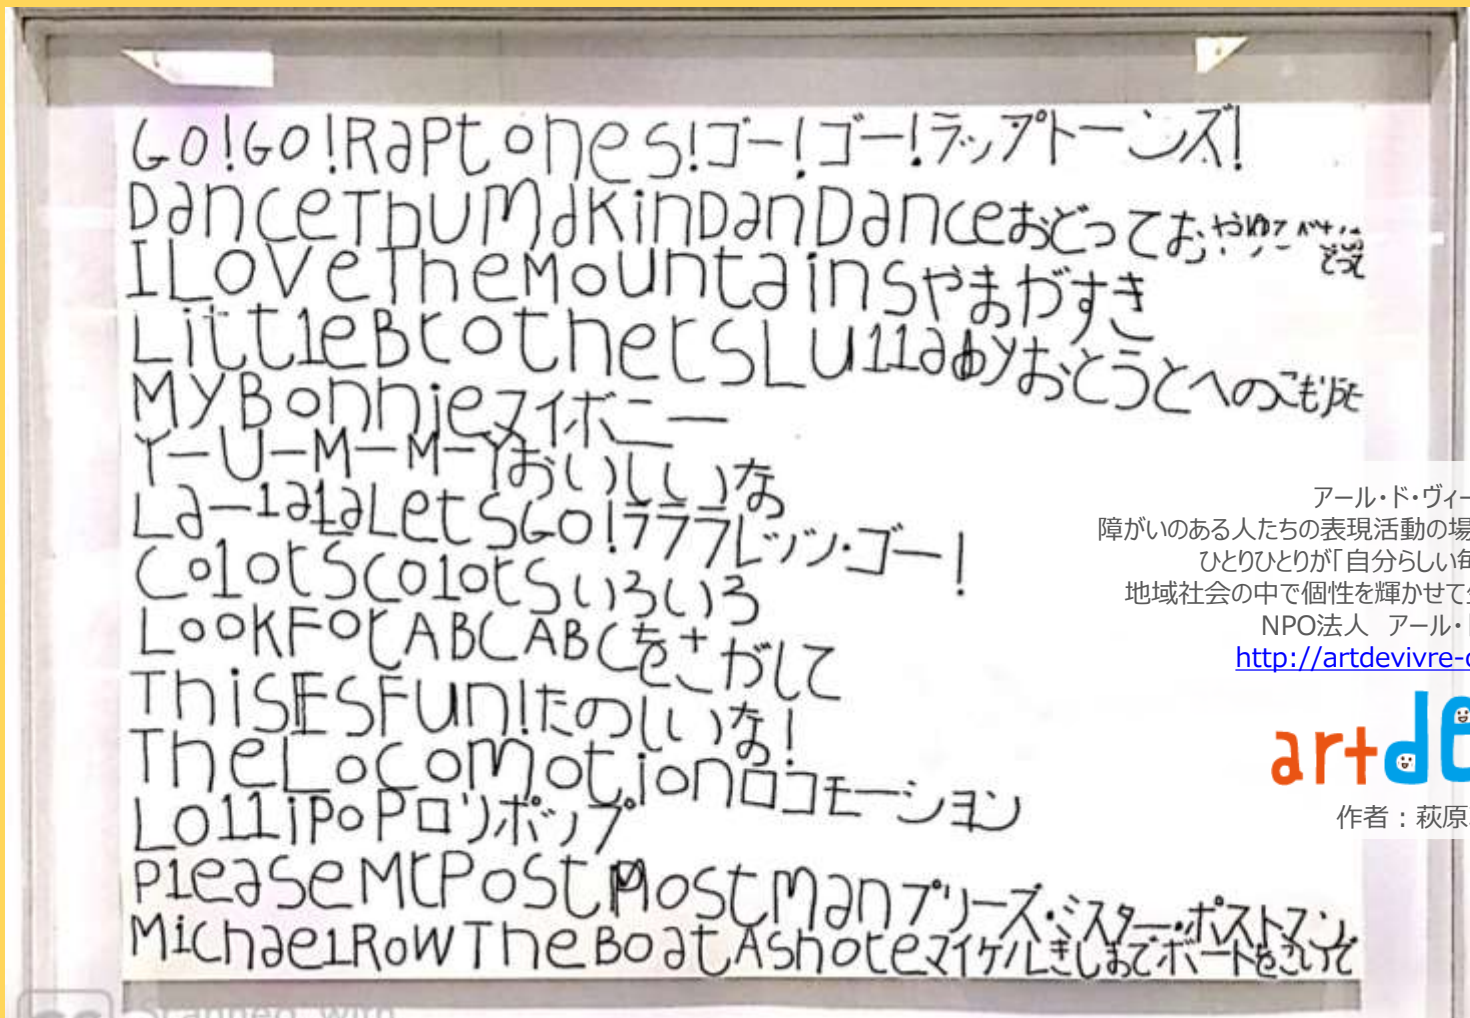 Go!Go!Raptones!ゴー!ゴー!ラップトーンズ!
DanceThuMdKinDanDanceおどってお
ILoveTheMountainsやまがすき
LittleBrothersLullabyおとうとへのこもりうた
MyBonnieマイボニー
Y-U-M-M-Yおいしいな
La-lalaLetsGo!ラララレッツ・ゴー!
ColorsColorsいろいろ
LookForABCABCをさがして
ThisESFun!たのしいな!
TheLocomotionロコモーション
LollipoPロリポップ
PleaseMrPostMostmanプリーズ・ミスター・ポストマン
MichaelRowTheBoatAshoreマイケルきしまでボートをこいで
アール・ド・ヴィー
障がいのある人たちの表現活動の場
ひとりひとりが「自分らしい毎
地域社会の中で個性を輝かせて
NPO法人 アール・
http://artdevivre-
artde
作者：萩原
Scanned with